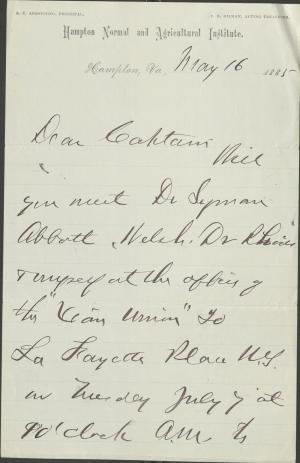 S. C. ARMSTRONG, PRINCIPAL.
F. N. GILMAN, ACTING TREASURER.
Hampton Normal and Agricultural Institute.
Hampton, Va, May 16 1885
Dear Captain
Will
you meet Dr Lyman
Abbott, Welsh, Dr Rhoads
& myself at the office of
the "Xian Union" 20
La Fayette Place N.Y.
on Tuesday July 7 at
10 o'clock A.M. to